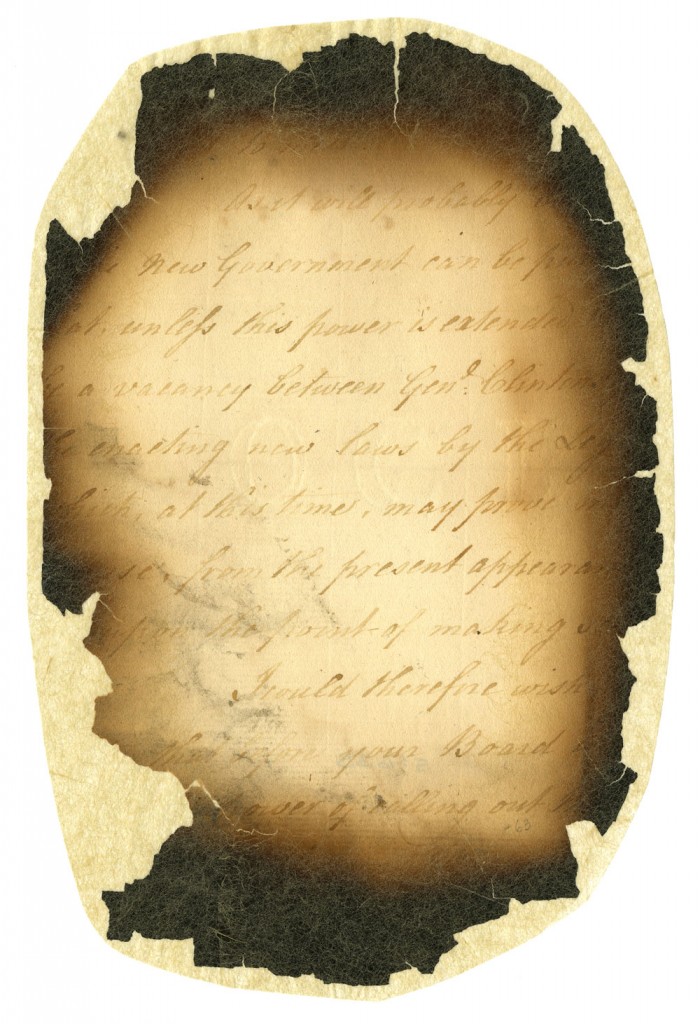 to
As it will probably
new Government can be
at, unless this power is extended
a vacancy between Gen.^l Clinton's
enacting new laws by the Leg
at this time, may prove
from the present appearan
upon the point of making
I could therefore wish
your Board
power of calling out
63